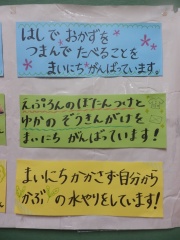 はしで、おかずを
つまんで たべることを
まいにち がんばっています。
えぷろんのぼたんつけと
ゆかの ぞうきんがけを
まいにち がんばっています!
まいにちかかさず自分から
かぶ の水やりをしています!